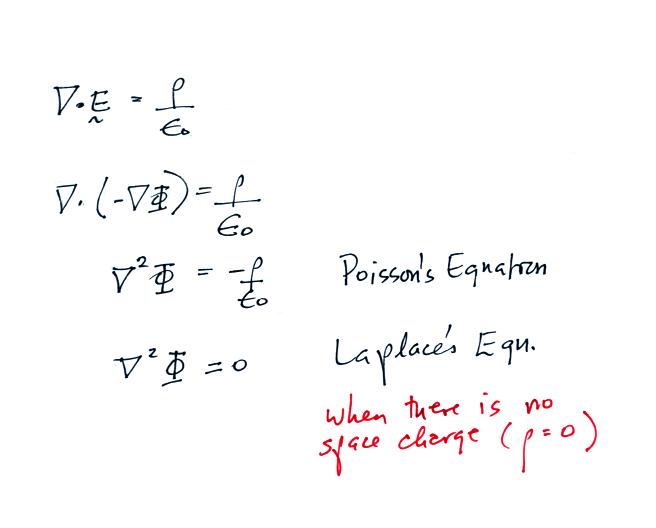 ∇·Ḛ = ρ/ε₀
∇·(-∇Φ) = ρ/ε₀
∇²Φ = -ρ/ε₀ Poisson's Equation
∇²Φ = 0 Laplace's Eqn.
when there is no
space charge (ρ=0)